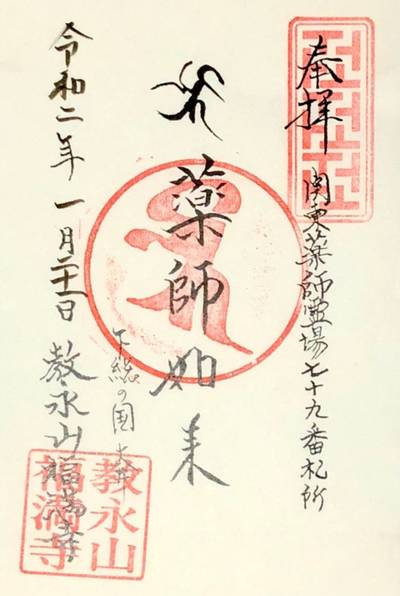 奉拝
関東薬師霊場七十九番札所
薬師如来
下総の国大井
教永山福満寺
令和二年一月二十一日
教永山
福満寺